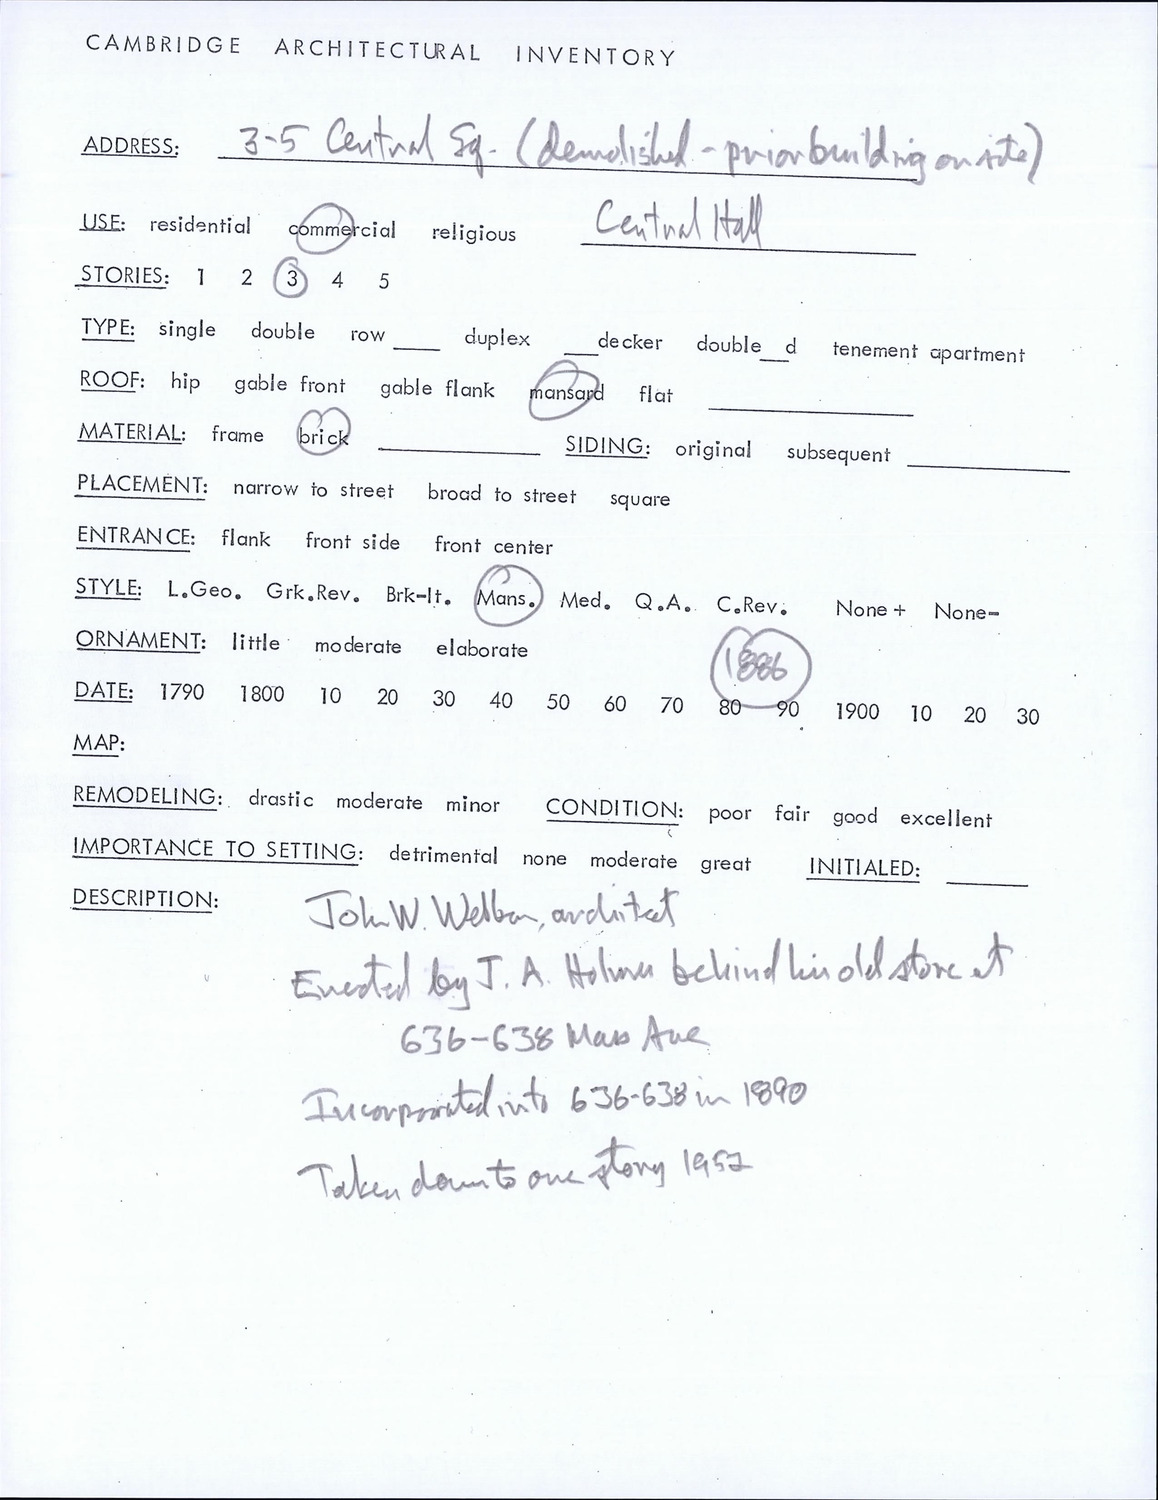 CAMBRIDGE ARCHITECTURAL INVENTORY
ADDRESS: 3-5 Central Sq. (demolished - prior building on site)
USE: residential commercial religious Central Hall
STORIES: 1 2 3 4 5
TYPE: single double row ____ duplex ___decker double__d tenement apartment
ROOF: hip gable front gable flank mansard flat
MATERIAL: frame brick SIDING: original subsequent
PLACEMENT: narrow to street broad to street square
ENTRANCE: flank front side front center
STYLE: L.Geo. Grk.Rev. Brk-It. Mans. Med. Q.A. C.Rev. None+ None-
ORNAMENT: little moderate elaborate
1886
DATE: 1790 1800 10 20 30 40 50 60 70 80 90 1900 10 20 30
MAP:
REMODELING: drastic moderate minor CONDITION: poor fair good excellent
IMPORTANCE TO SETTING: detrimental none moderate great INITIALED:
DESCRIPTION: John W. architect
Erected by J. A. Holmes behind his old store at
636-638 Mass Ave
Incorporated into 636-638 in 1890
Taken down to one story 1952